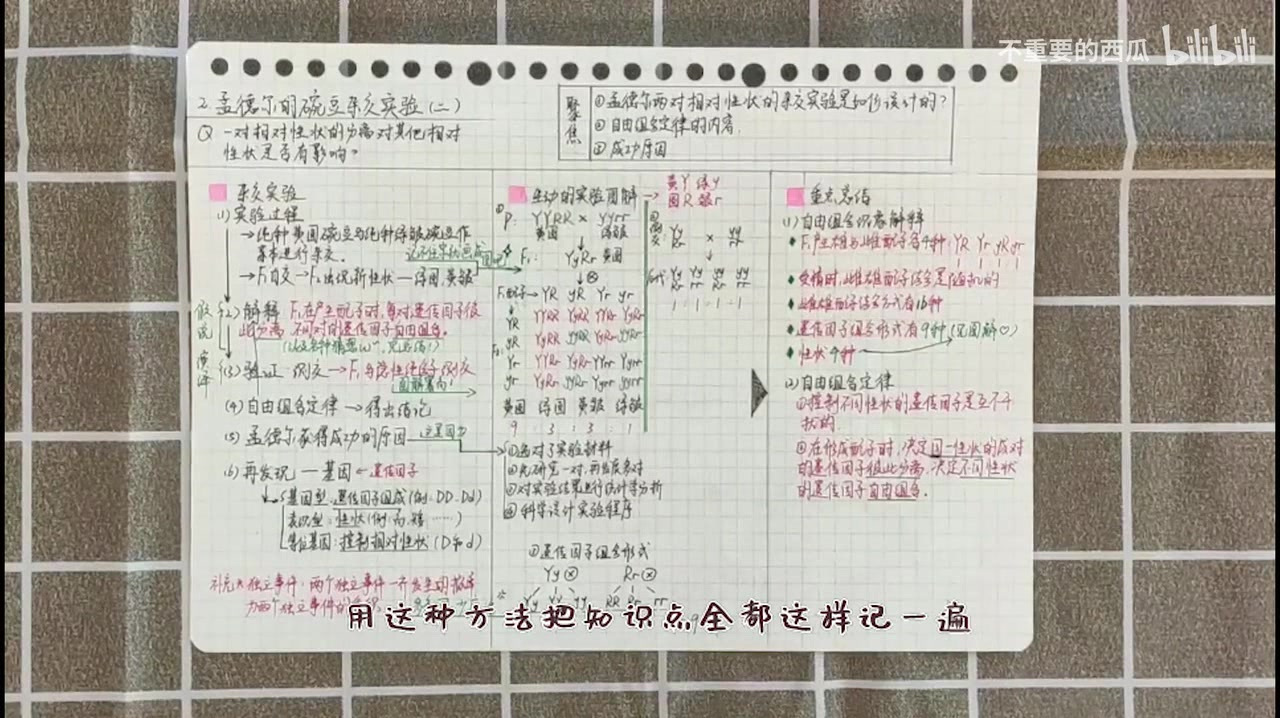 不重要的西瓜 bilibili
2.孟德尔的豌豆杂交实验(二)
Q 一对相对性状的分离对其他相对
性状是否有影响?
聚焦
①孟德尔两对相对性状的杂交实验是如何设计的?
②自由组合定律的内容.
③成功原因
杂交实验
(1)实验过程
→纯种黄圆豌豆与纯种绿皱豌豆作
亲本进行杂交.
→F₁自交→F₂出现新性状—绿圆.黄皱
假说
演绎
(2)解释 F₁在产生配子时,每对遗传因子彼
此分离 不同对的遗传因子自由组合.
(3)验证:测交→F₁与隐性纯合子测交
(4)自由组合定律→得出结论
(5)孟德尔获得成功的原因
(6)再发现—基因←遗传因子
基因型:遗传因子组成(例:DD.Dd)
表现型:性状(例:高.矮……)
等位基因:控制相对性状(D和d)
补充:独立事件:两个独立事件一齐发生的概率
生动的实验图解→
黄Y 绿y
圆R 皱r
P: YYRR × yyrr
黄圆 绿皱
F₁: YyRr 黄圆
F₁配子→YR yR Yr yr
YR YYRR YyRR YYRr YyRr
yR YyRR yyRR YyRr yyRr
Yr YYRr YyRr YYrr Yyrr
yr YyRr yyRr Yyrr yyrr
黄圆 绿圆 黄皱 绿皱
9 : 3 : 3 : 1
Yy × yy
Rr rr
Yy Yy yy yy
Rr rr Rr rr
1:1:1:1
①选对了实验材料
②先研究一对,再发展多对
③对实验结果进行统计学分析
④科学设计实验程序
①遗传因子组合形式
Yy⊗ Rr⊗
YY Yy yy RR Rr rr
重点总结
(1)自由组合内容解释
F₁产生雄与雌配子各4种:YR Yr yR yr
1 : 1 : 1 : 1
受精时,雌雄配子结合是随机的
雌雄配子结合方式有16种
遗传因子组合形式有9种(见图解♡)
性状4种
(2)自由组合定律
①控制不同性状的遗传因子是互不干
扰的.
②在形成配子时,决定同一性状的成对
的遗传因子彼此分离,决定不同性状
的遗传因子自由组合.
用这种方法把知识点全都这样记一遍